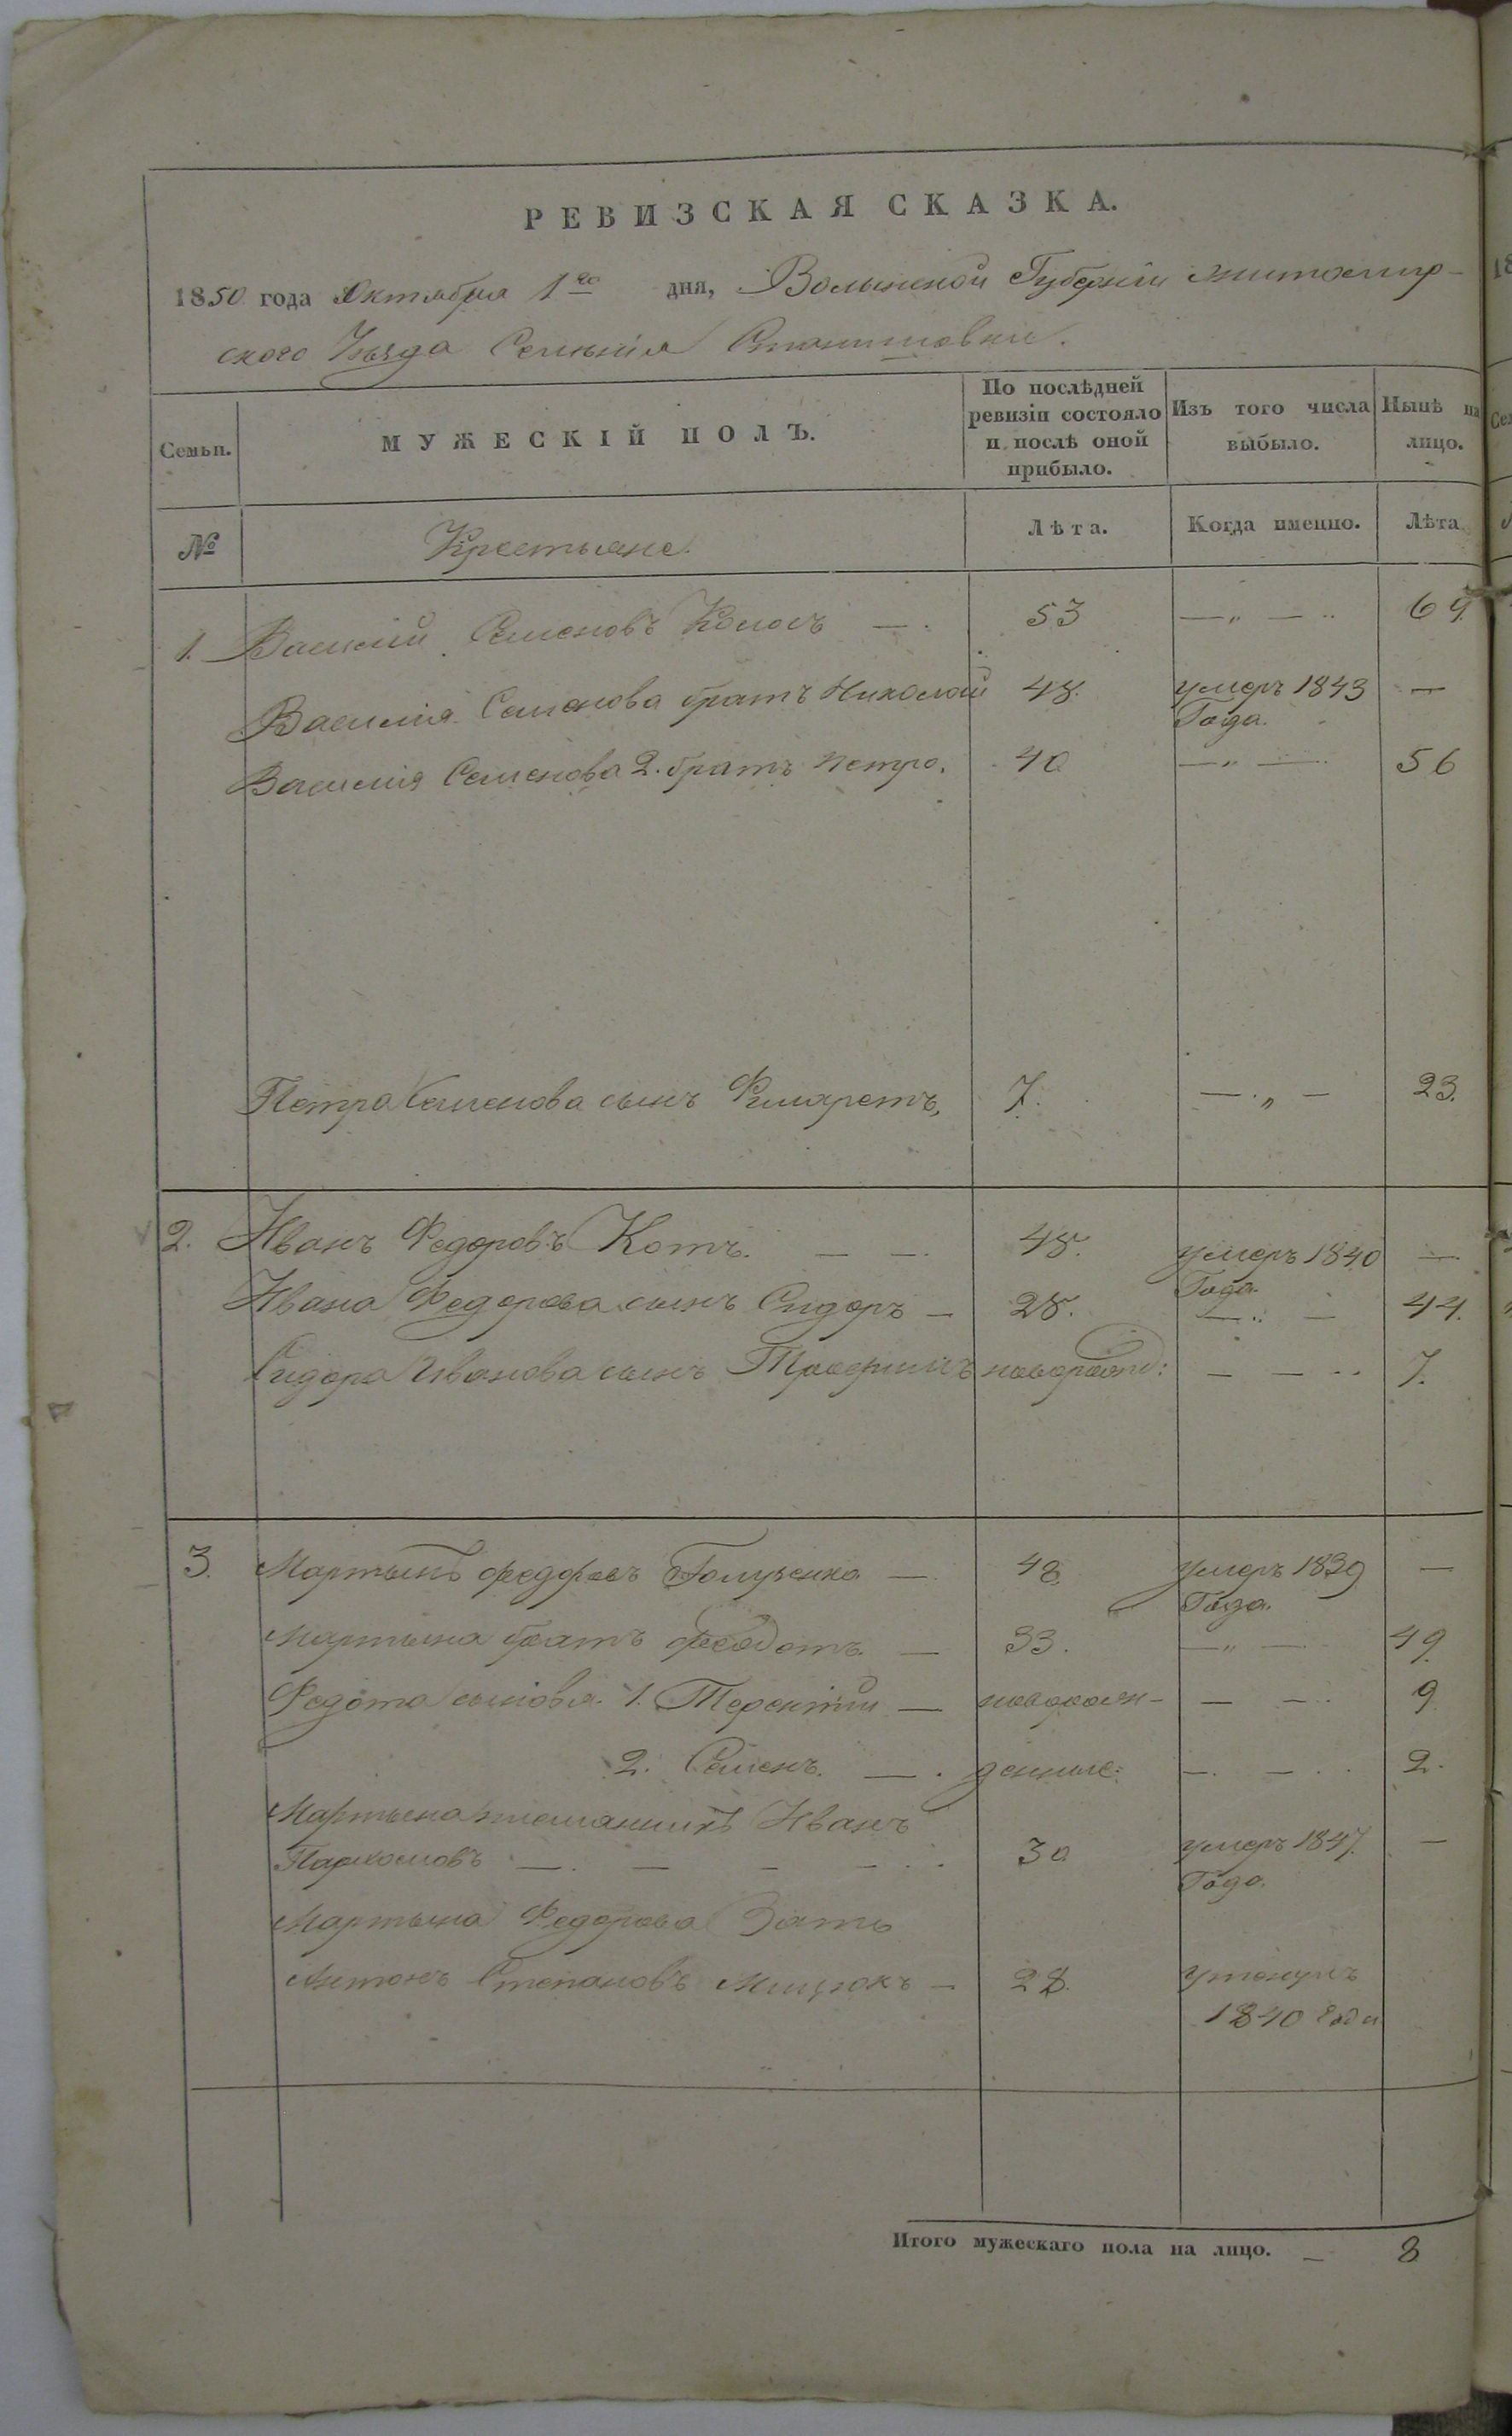 РЕВИЗСКАЯ СКАЗКА.
1850 года Октября 1го дня, Волынской Губерніи Житомир-
ского Уѣзда Селенія Станишовки.
Семьи. МУЖЕСКІЙ ПОЛЪ. По послѣдней ревизіи состояло и послѣ оной прибыло. Изъ того числа выбыло. Нынѣ на лицо.
№ Крестьяне. Лѣта. Когда именно. Лѣта
1. Василій Семеновъ — 53 — „ — 69.
Василія Семенова братъ Николай 48. умеръ 1843 —
Года.
Василія Семенова 2. братъ Петро. 40 — „ — 56
Петра Семенова сынъ Филаретъ, 7. — „ — 23.
2. Иванъ Федоровъ Котъ. — — 48. умеръ 1840 —
Года.
Ивана Федорова сынъ Сидоръ — 28. — „ — 44.
Сидора Иванова сынъ новорожд: — — 7.
3. Мартынъ Федоровъ — 48. умеръ 1839 —
Года.
Мартына братъ Феодотъ. — 33. — „ — 49.
Федота сыновья. 1. Терентій — новорож- — — 9.
2. Семенъ. — . денные: — — 2.
Мартына племянникъ Иванъ
Пархомовъ — — — — 30 умеръ 1847. —
Года.
Мартына Федорова Зять
Антонъ Степановъ Мицюкъ — 28. утонулъ
1840 года
Итого мужескаго пола на лицо. — 8